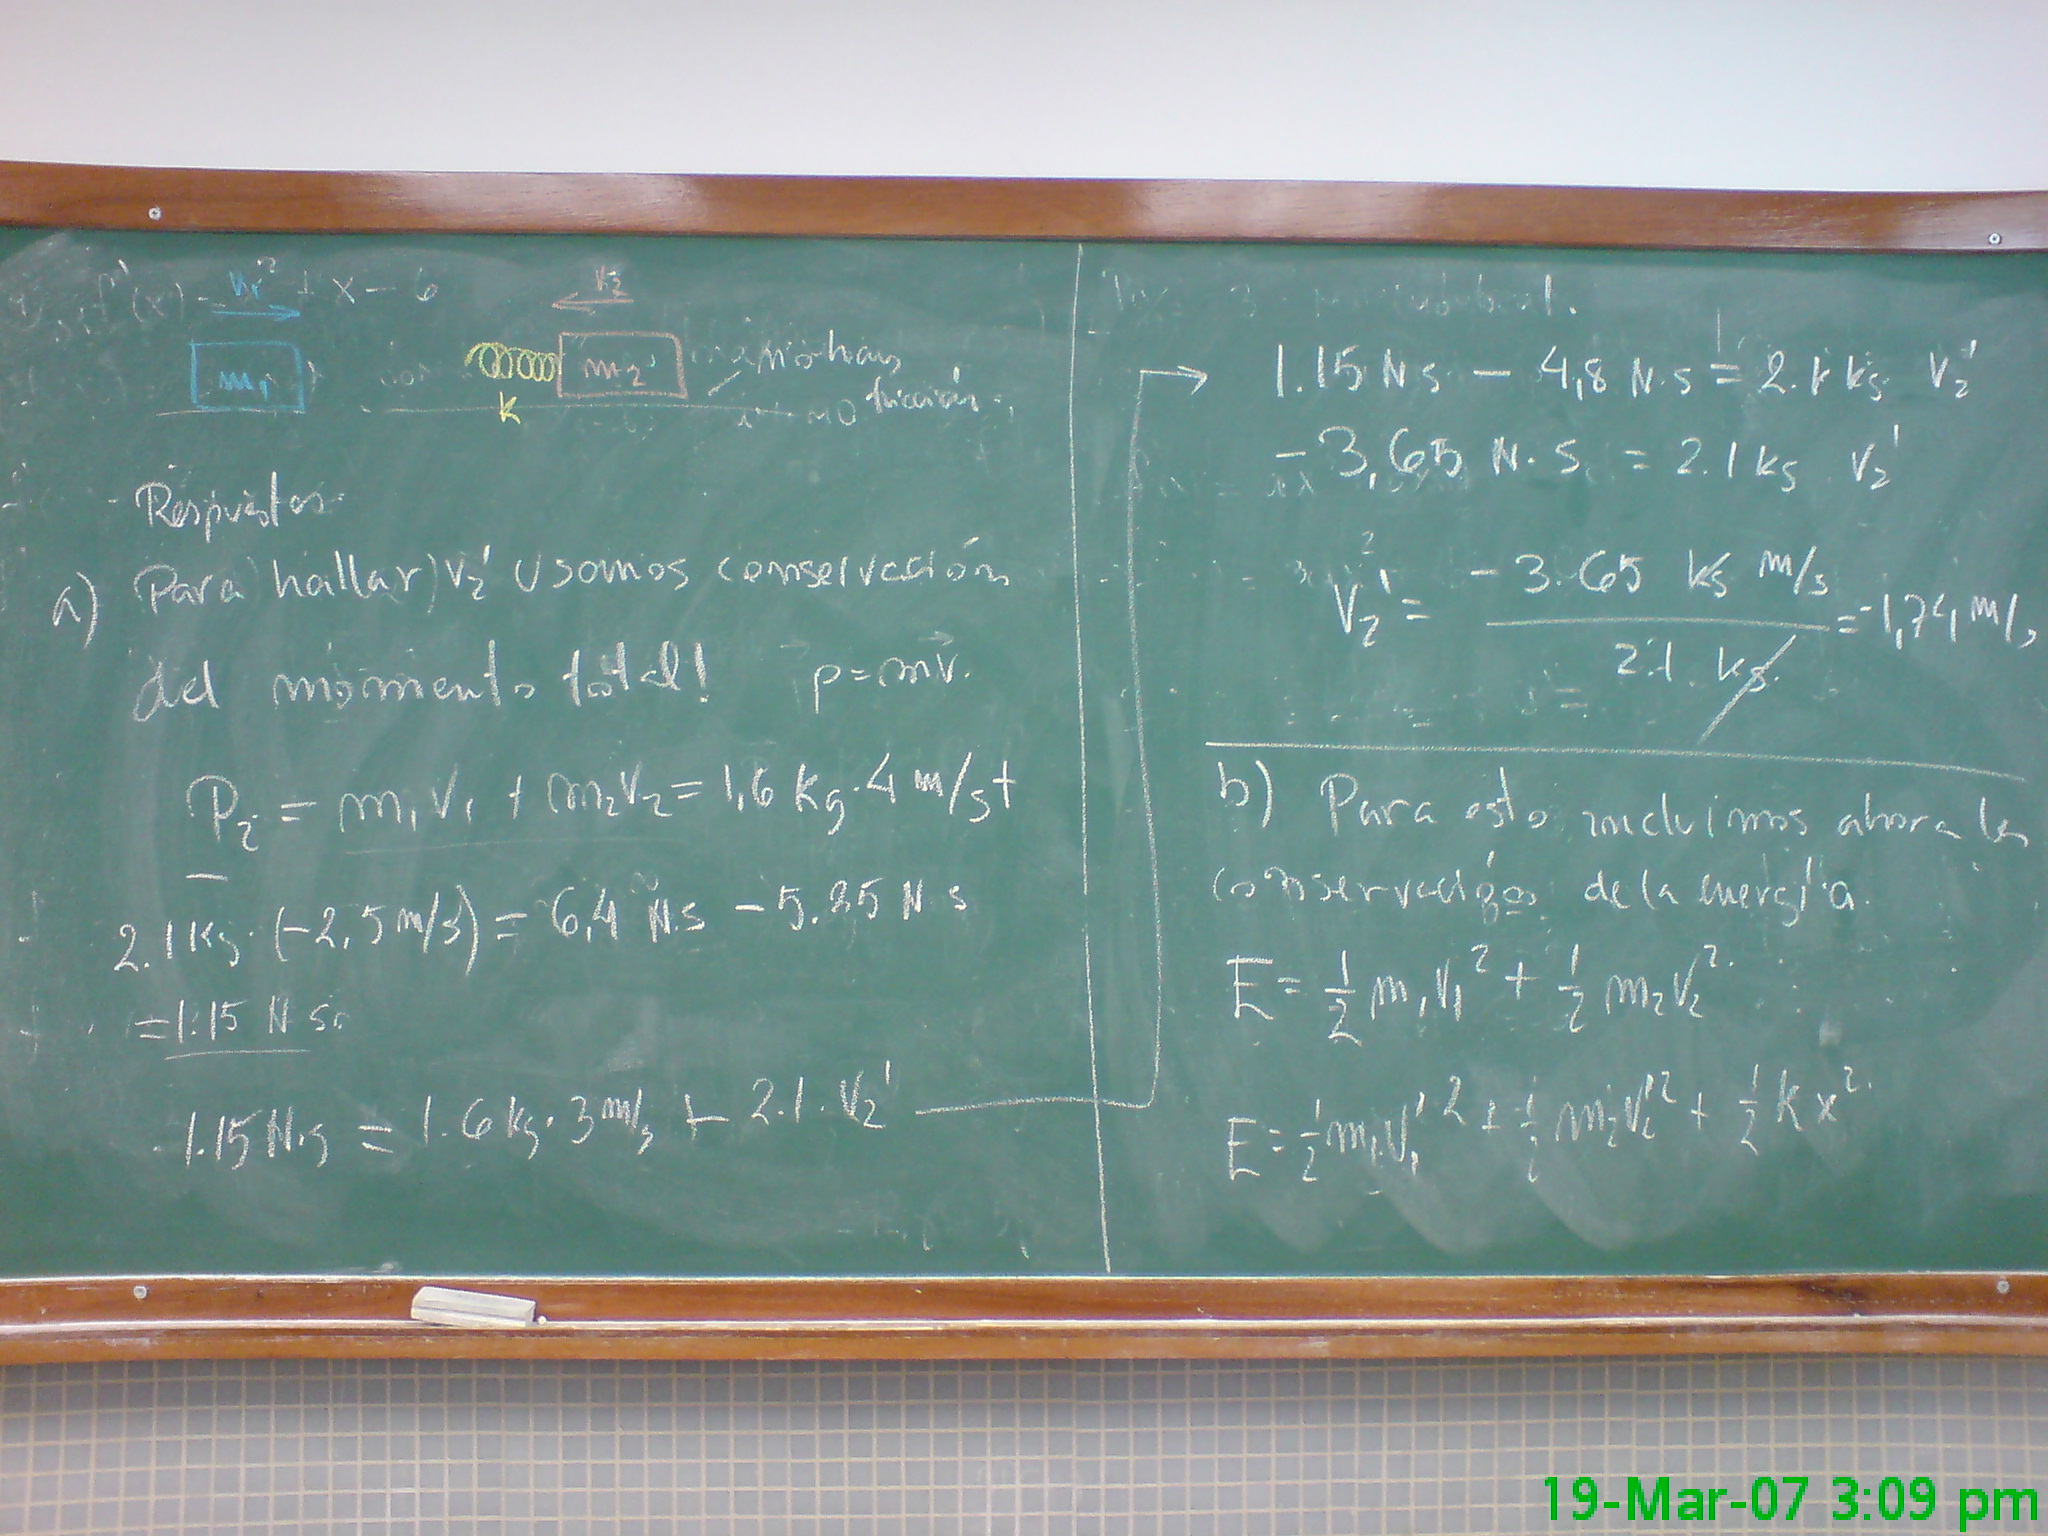 V₁ V₂
m₁ m₂ No hay
K fricción
Respuestas
a) Para hallar V₂' usamos conservación
del momento total! p=mv.
P₂ = m₁V₁ + m₂V₂ = 1,6 kg·4 m/s +
2.1 kg·(-2,5 m/s) = 6,4 N.s - 5.25 N s
= 1.15 N s.
1.15 N·s = 1.6 kg·3 m/s + 2.1·V₂'
1.15 N s - 4,8 N·s = 2.1 kg V₂'
-3,65 N·s = 2.1 kg V₂'
V₂' = -3.65 kg m/s / 2.1 kg = -1,74 m/s
b) Para esto incluimos ahora la
conservación de la energía.
E = ½ m₁V₁² + ½ m₂V₂²
E = ½ m₁V₁'² + ½ m₂V₂'² + ½ K x²
19-Mar-07 3:09 pm